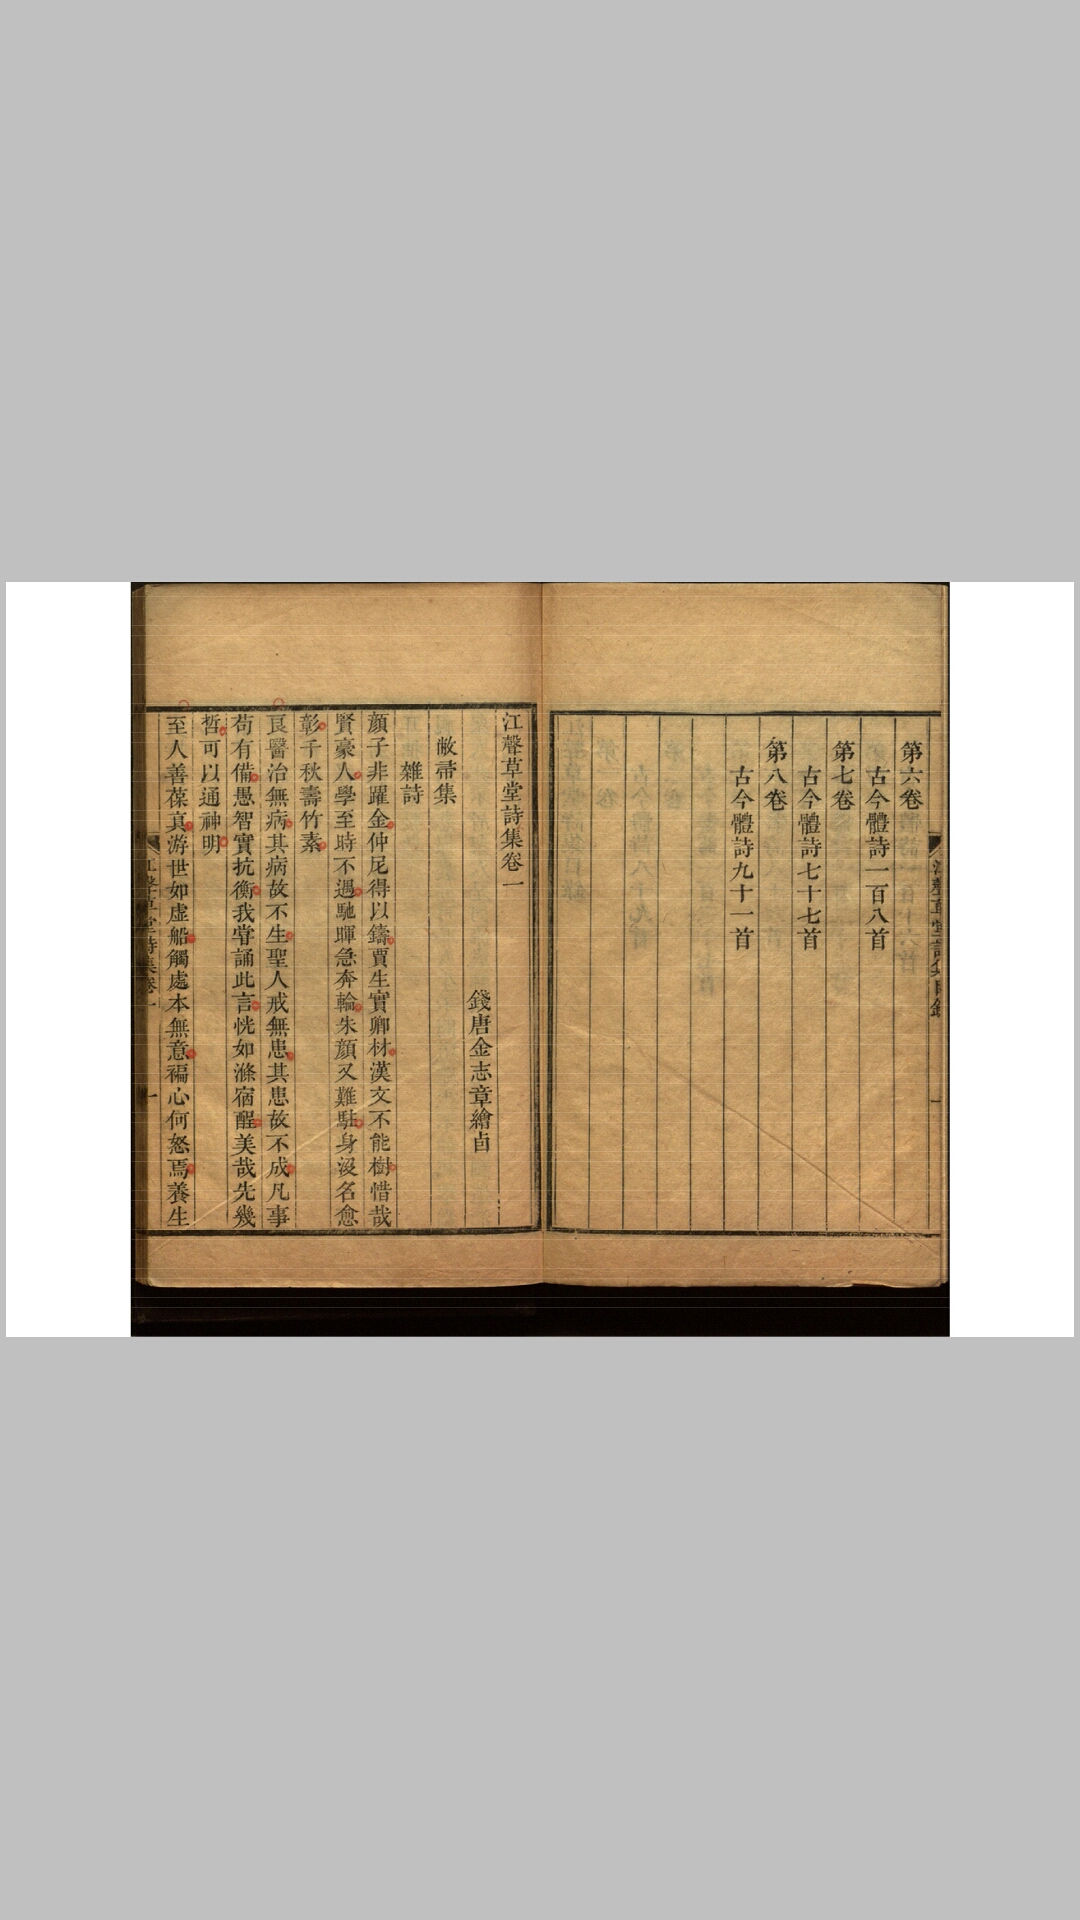 第六卷
古今體詩一百八首
第七卷
古今體詩七十七首
第八卷
古今體詩九十一首
江聲草堂詩集卷一
錢唐金志章繪卣
敝帚集
雜詩
顏子非躍金仲尼得以鑄賈生實卿材漢文不能樹惜哉
賢豪人學至時不遇馳暉急奔輪朱顏又難駐身沒名愈
彰千秋壽竹素
良醫治無病其病故不生聖人戒無患其患故不成凡事
苟有備愚智實抗衡我嘗誦此言恍如滌宿酲美哉先幾
哲可以通神明
至人善葆真游世如虛船觸處本無意褊心何怒焉養生
江聲草堂詩集卷一
一